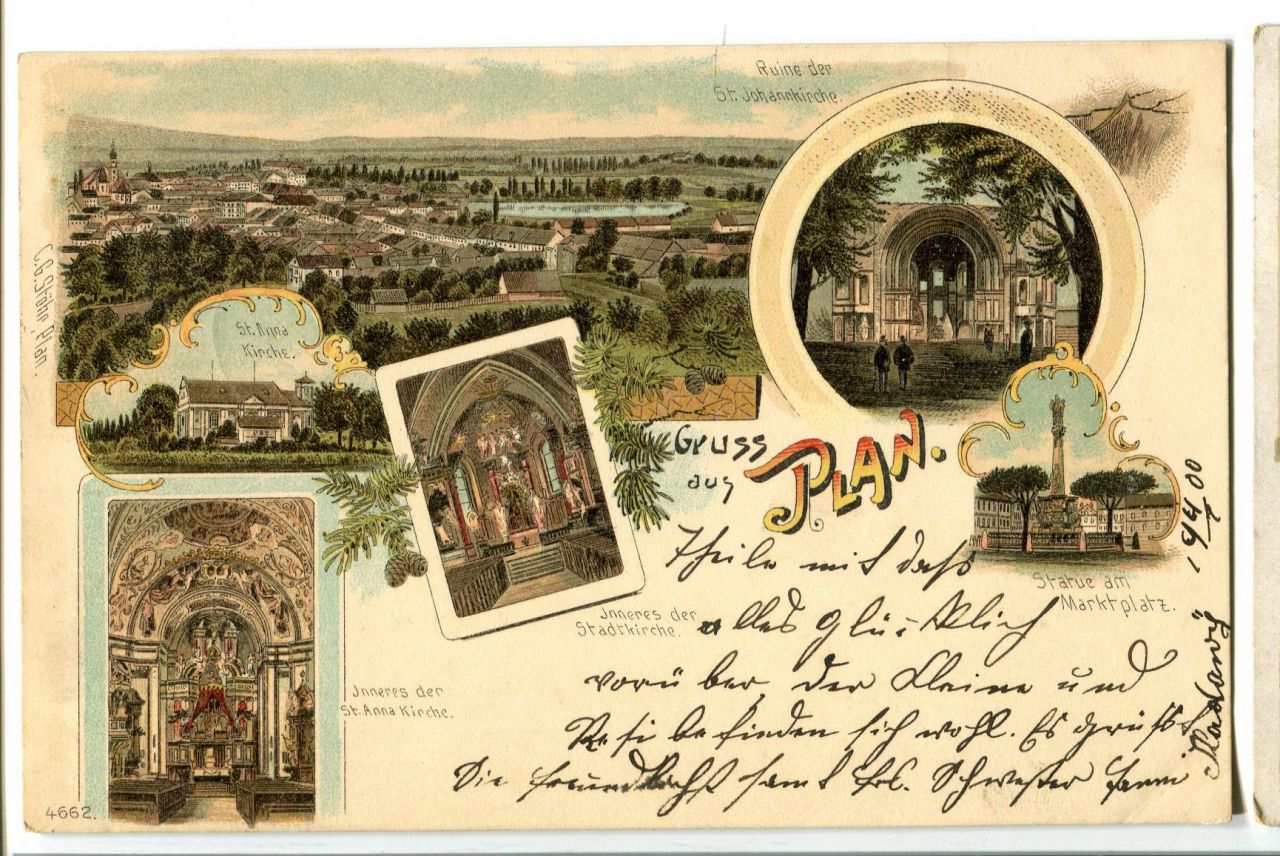 Ruine der
St. Johannkirche.
C.G. Stühr Plan
St. Anna
Kirche.
Gruss
aus
PLAN.
Statue am
Marktplatz.
Inneres der
Stadtkirche.
Inneres der
St. Anna Kirche.
4662.
Theile mit daß
alles glücklich
vorüber, der Kleine und
Resi befinden sich wohl. Es grüßt
Sie freundlichst samt Frl. Schwester Fanni